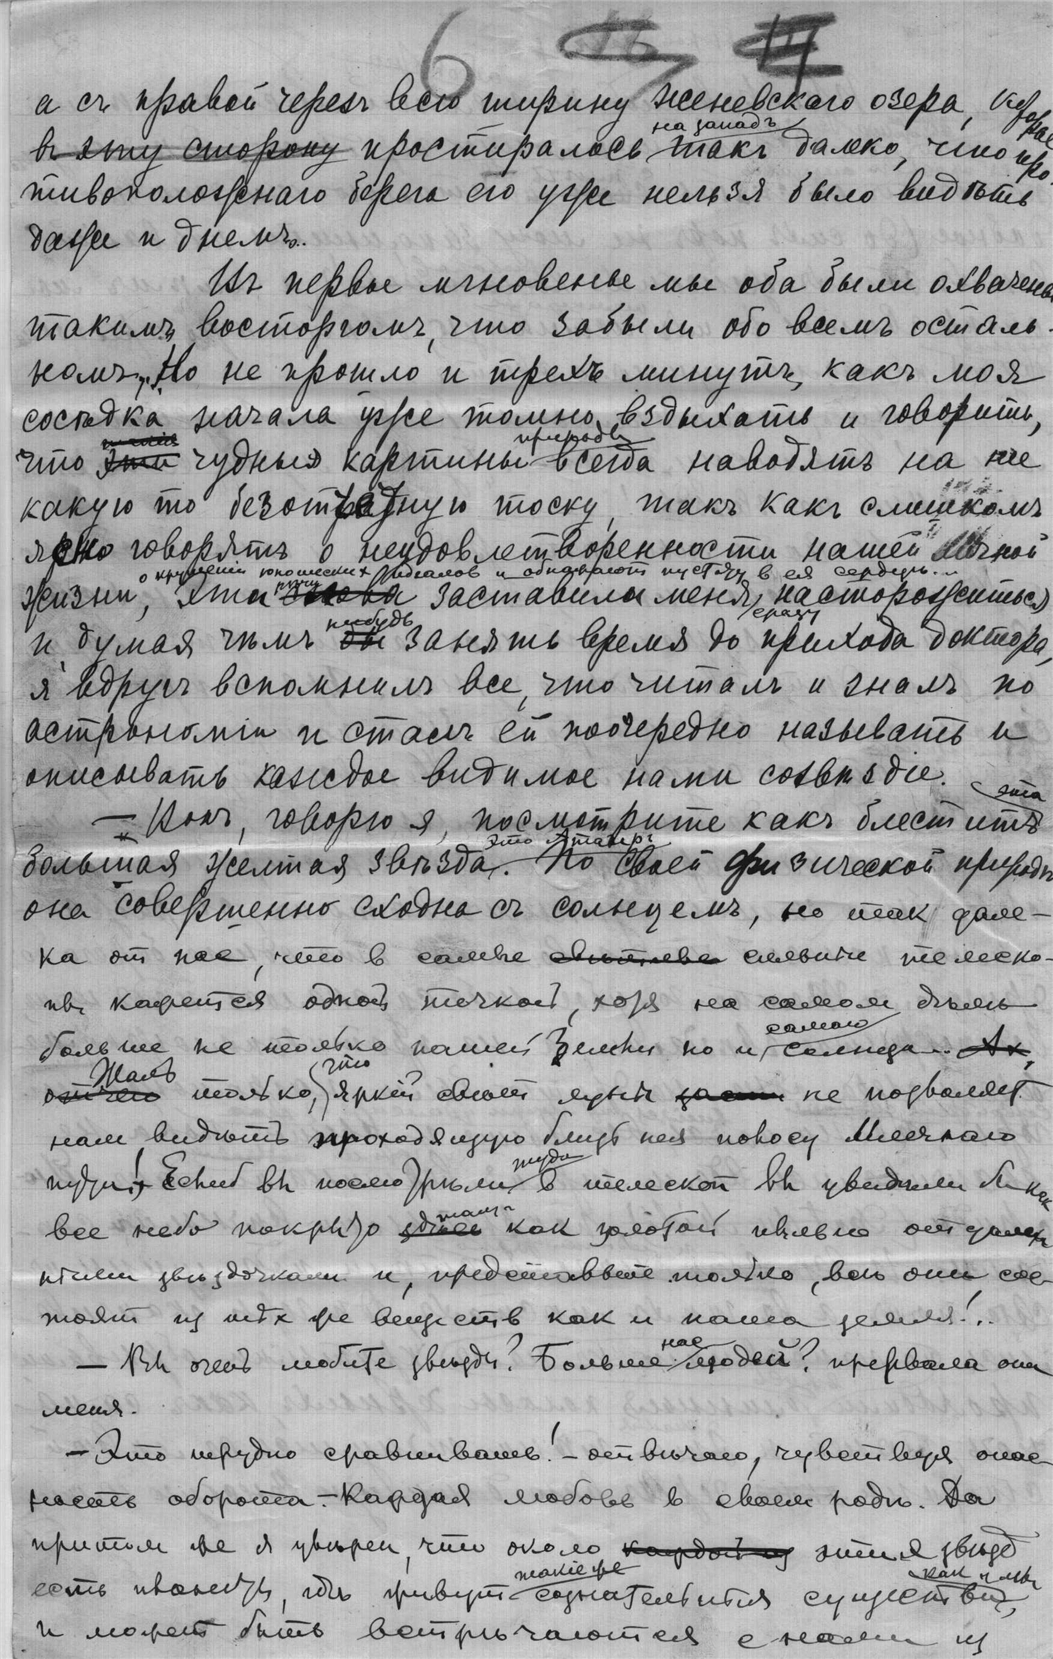 6
а съ правой черезъ всю ширину Женевскаго озера, которое
въ эту сторону простиралось на западъ такъ далеко, что про-
тивоположнаго берега его уже нельзя было видѣть
даже и днемъ..
Въ первое мгновенье мы оба были охвачены
такимъ восторгомъ, что забыли обо всемъ осталь-
номъ. Но не прошло и трехъ минутъ, какъ моя
сосѣдка начала уже томно вздыхать и говорить,
что эти чудныя картины природы всегда наводятъ на нее
какую то безотрадную тоску, такъ какъ слишкомъ
ясно говорятъ о неудовлетворенности нашей личной
о крушеніи юношескихъ идеаловъ и обнажаютъ пустоту в ея сердцѣ...
жизни, Эти слова заставили меня насторожиться
и, думая чѣмъ нибудь бы занять время до прихода доктора,
я вдругъ вспомнилъ все, что читалъ и зналъ по
астрономіи и сталъ ей поочередно называть и
описывать каждое видимое нами созвѣздіе.
— Вонъ, говорю я, посмотрите какъ блеститъ эта
большая желтая звѣзда. Это Альтаиръ. По своей физической природѣ
она совершенно сходна съ солнцемъ, но так дале-
ка от нас, что в самые свѣтлые сильные телеско-
пы кажется одной точкой, хотя на самом дѣлѣ
больше не только нашей Земли но и самого солнца.. Ах,
отчего Жаль только, что яркій свѣт луны не позволяет
нам видѣть проходящую близь нея полосу Млечнаго
пути! Если б вы посмотрѣли туда в телескоп вы увидѣли бы как
все небо покрыто здѣсь как золотой пылью отдален-
ными звѣздочками и, представьте только, всѣ они сос-
тоят из тѣх же веществ как и наша земля!..
— Вы очень любите звѣзды? Больше нас людей? прервала она
меня.
— Это трудно сравнивать! — отвѣчаю, чувствуя опас-
ность оборота. — Каждая любовь в своем родѣ. Да
притом же я увѣрен, что около каждой из этих звѣзд
есть планеты, гдѣ живут такіе же сознательныя существа, как и мы
и может быть встрѣчаются с нами из